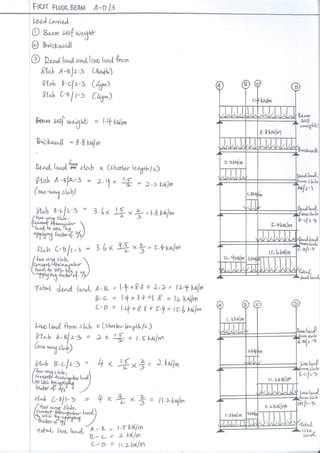 FIRST FLOOR BEAM A-D/3
Load Carried
① Beam self weight
② Brickwall
③ Dead load and live load from
Slab A-B/2-3
Slab B-C/2-3 (Gym)
Slab C-D/1-3 (Gym)
Beam self weight = 1.4 kN/m
Brickwall = 8.8 kN/m
Dead load from slab x (shorter length/2)
Slab A-B/2-3 = 2.9 x 1.5/2 = 2.2 kN/m
(one way slab)
Slab B-C/2-3 = 3.6 x 1.5/2 x 2/3 = 1.8 kN/m
(two way slab;
convert triangular
load to UDL by
applying factor of 2/3)
Slab C-D/1-3 = 3.6 x 4.5/2 x 2/3 = 5.4 kN/m
(two way slab;
load to UDL by
applying factor of 2/3)
Total dead load A-B = 1.4 + 8.8 + 2.2 = 12.4 kN/m
B-C = 1.4 + 8.8 + 1.8 = 12 kN/m
C-D = 1.4 + 8.8 + 5.4 = 15.6 kN/m
Live load from slab x (shorter length/2)
Slab A-B/2-3 = 2 x 1.5/2 = 1.5 kN/m
(one way slab)
Slab B-C/2-3 = 4 x 1.5/2 x 2/3 = 2 kN/m
(two way slab;
to UDL by applying
factor of 2/3)
Slab C-D/1-3 = 4 x x 2/3 = 11.2 kN/m
(two way slab;
load
to UDL by applying
factor of 2/3)
Total live load A-B = 1.5 kN/m
B-C = 2 kN/m
C-D = 11.2 kN/m
A B C D
1.4 kN/m
Beam
self
weight
8.8 kN/m
Brickwall
Dead load
from slab
A-B/2-3
Dead load
from slab
B-C/2-3
5.4 kN/m
Dead load
from slab
C-D/1-3
15.6 kN/m
12.4 kN/m
Total
dead load
A B C D
Live load
from slab
A-B/2-3
Live load
from slab
B-C/2-3
11.2 kN/m
Live load
from slab
C-D/1-3
11.2 kN/m
Total
live
load